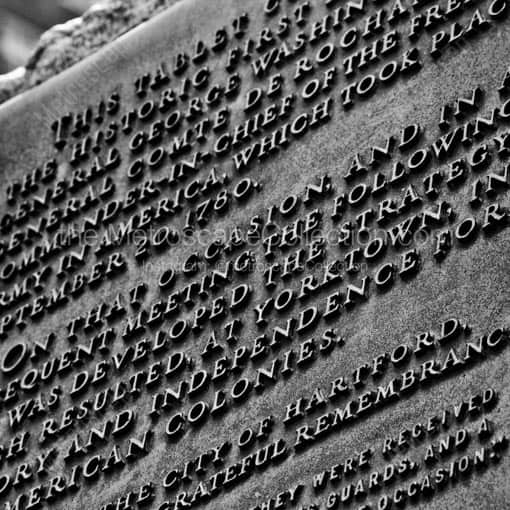 THIS TABLET C
THE HISTORIC FIRST
GENERAL GEORGE WASHIN
GENERAL COMTE DE ROCHA
COMMANDER-IN-CHIEF OF THE FRE
ARMY IN AMERICA, WHICH TOOK PLAC
SEPTEMBER 2 , 1780.
ON THAT OCCASION, AND IN A
SEQUENT MEETING, THE FOLLOWING
WAS DEVELOPED THE STRATEGY
CH RESULTED, AT YORKTOWN, IN
ORY AND INDEPENDENCE FOR
MERICAN COLONIES.
THE CITY OF HARTFORD,
GRATEFUL REMEMBRANC
HEY WERE RECEIVED
S GUARDS, AND A
OCCASION.
The MetroscapeCollection.com
Instagram: @metroscapeCollection